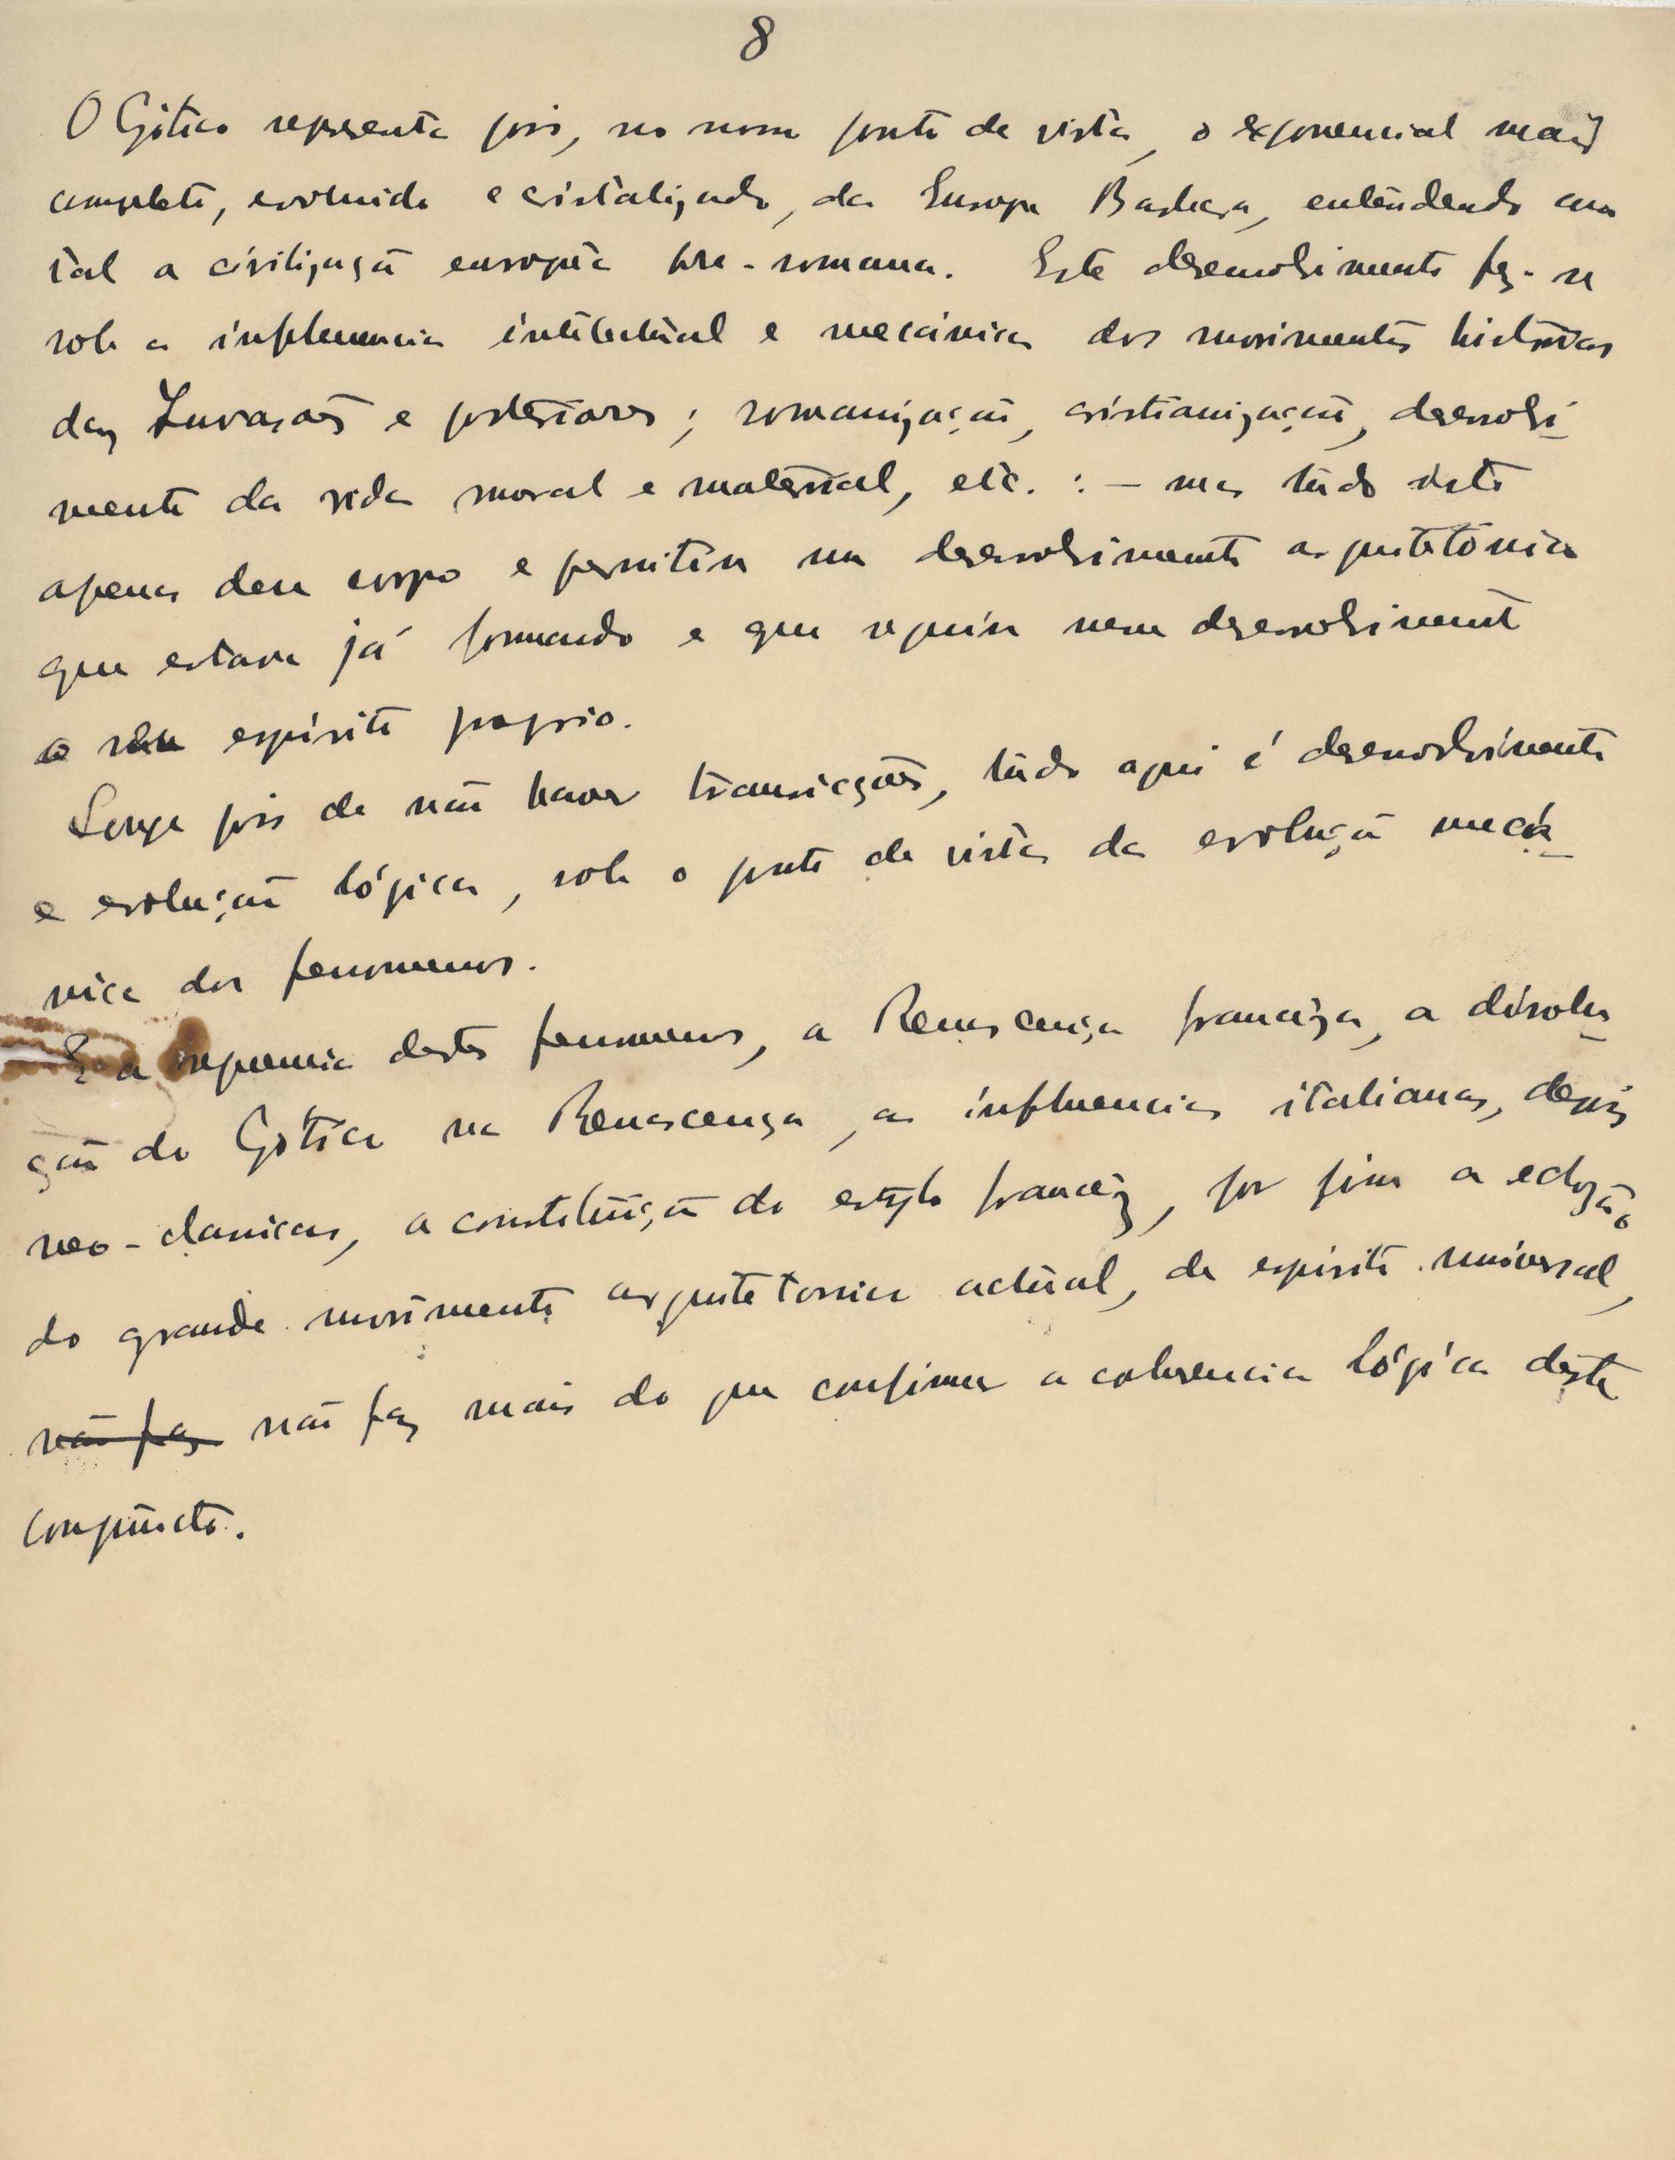 8
O Gótico representa pois, no nosso ponto de vista, o exponencial mais
completo, evoluido e cristalizado, da Europa Barbara, entendendo como
tal a civilização européa pre-romana. Este desenvolvimento fez-se
sob a influencia intelectual e mecánica dos movimentos historicos
das Invasões e posteriores; romanização, cristianização, desenvolvi-
mento da vida moral e material, etc. : — mas tudo isto
apenas deu corpo e permitiu um desenvolvimento arquitetónico
que estava já formando e que seguiu nesse desenvolvimento
o seu espírito proprio.
Longe pois de não haver transicções, tudo aqui é desenvolvimento
e evolução lógica, sob o ponto de vista da evolução mecá-
nica dos fenomenos.
E a sequencia destes fenomenos, a Renascença franceza, a disolu-
ção do Gotico na Renascença, as influencias italianas, depois
neo-classicas, a constituição do estylo francêz, por fim a eclosão
do grande movimento arquitetonico actual, de espirito universal,
não faz não faz mais do que confirmar a coherencia lógica deste
conjuncto.